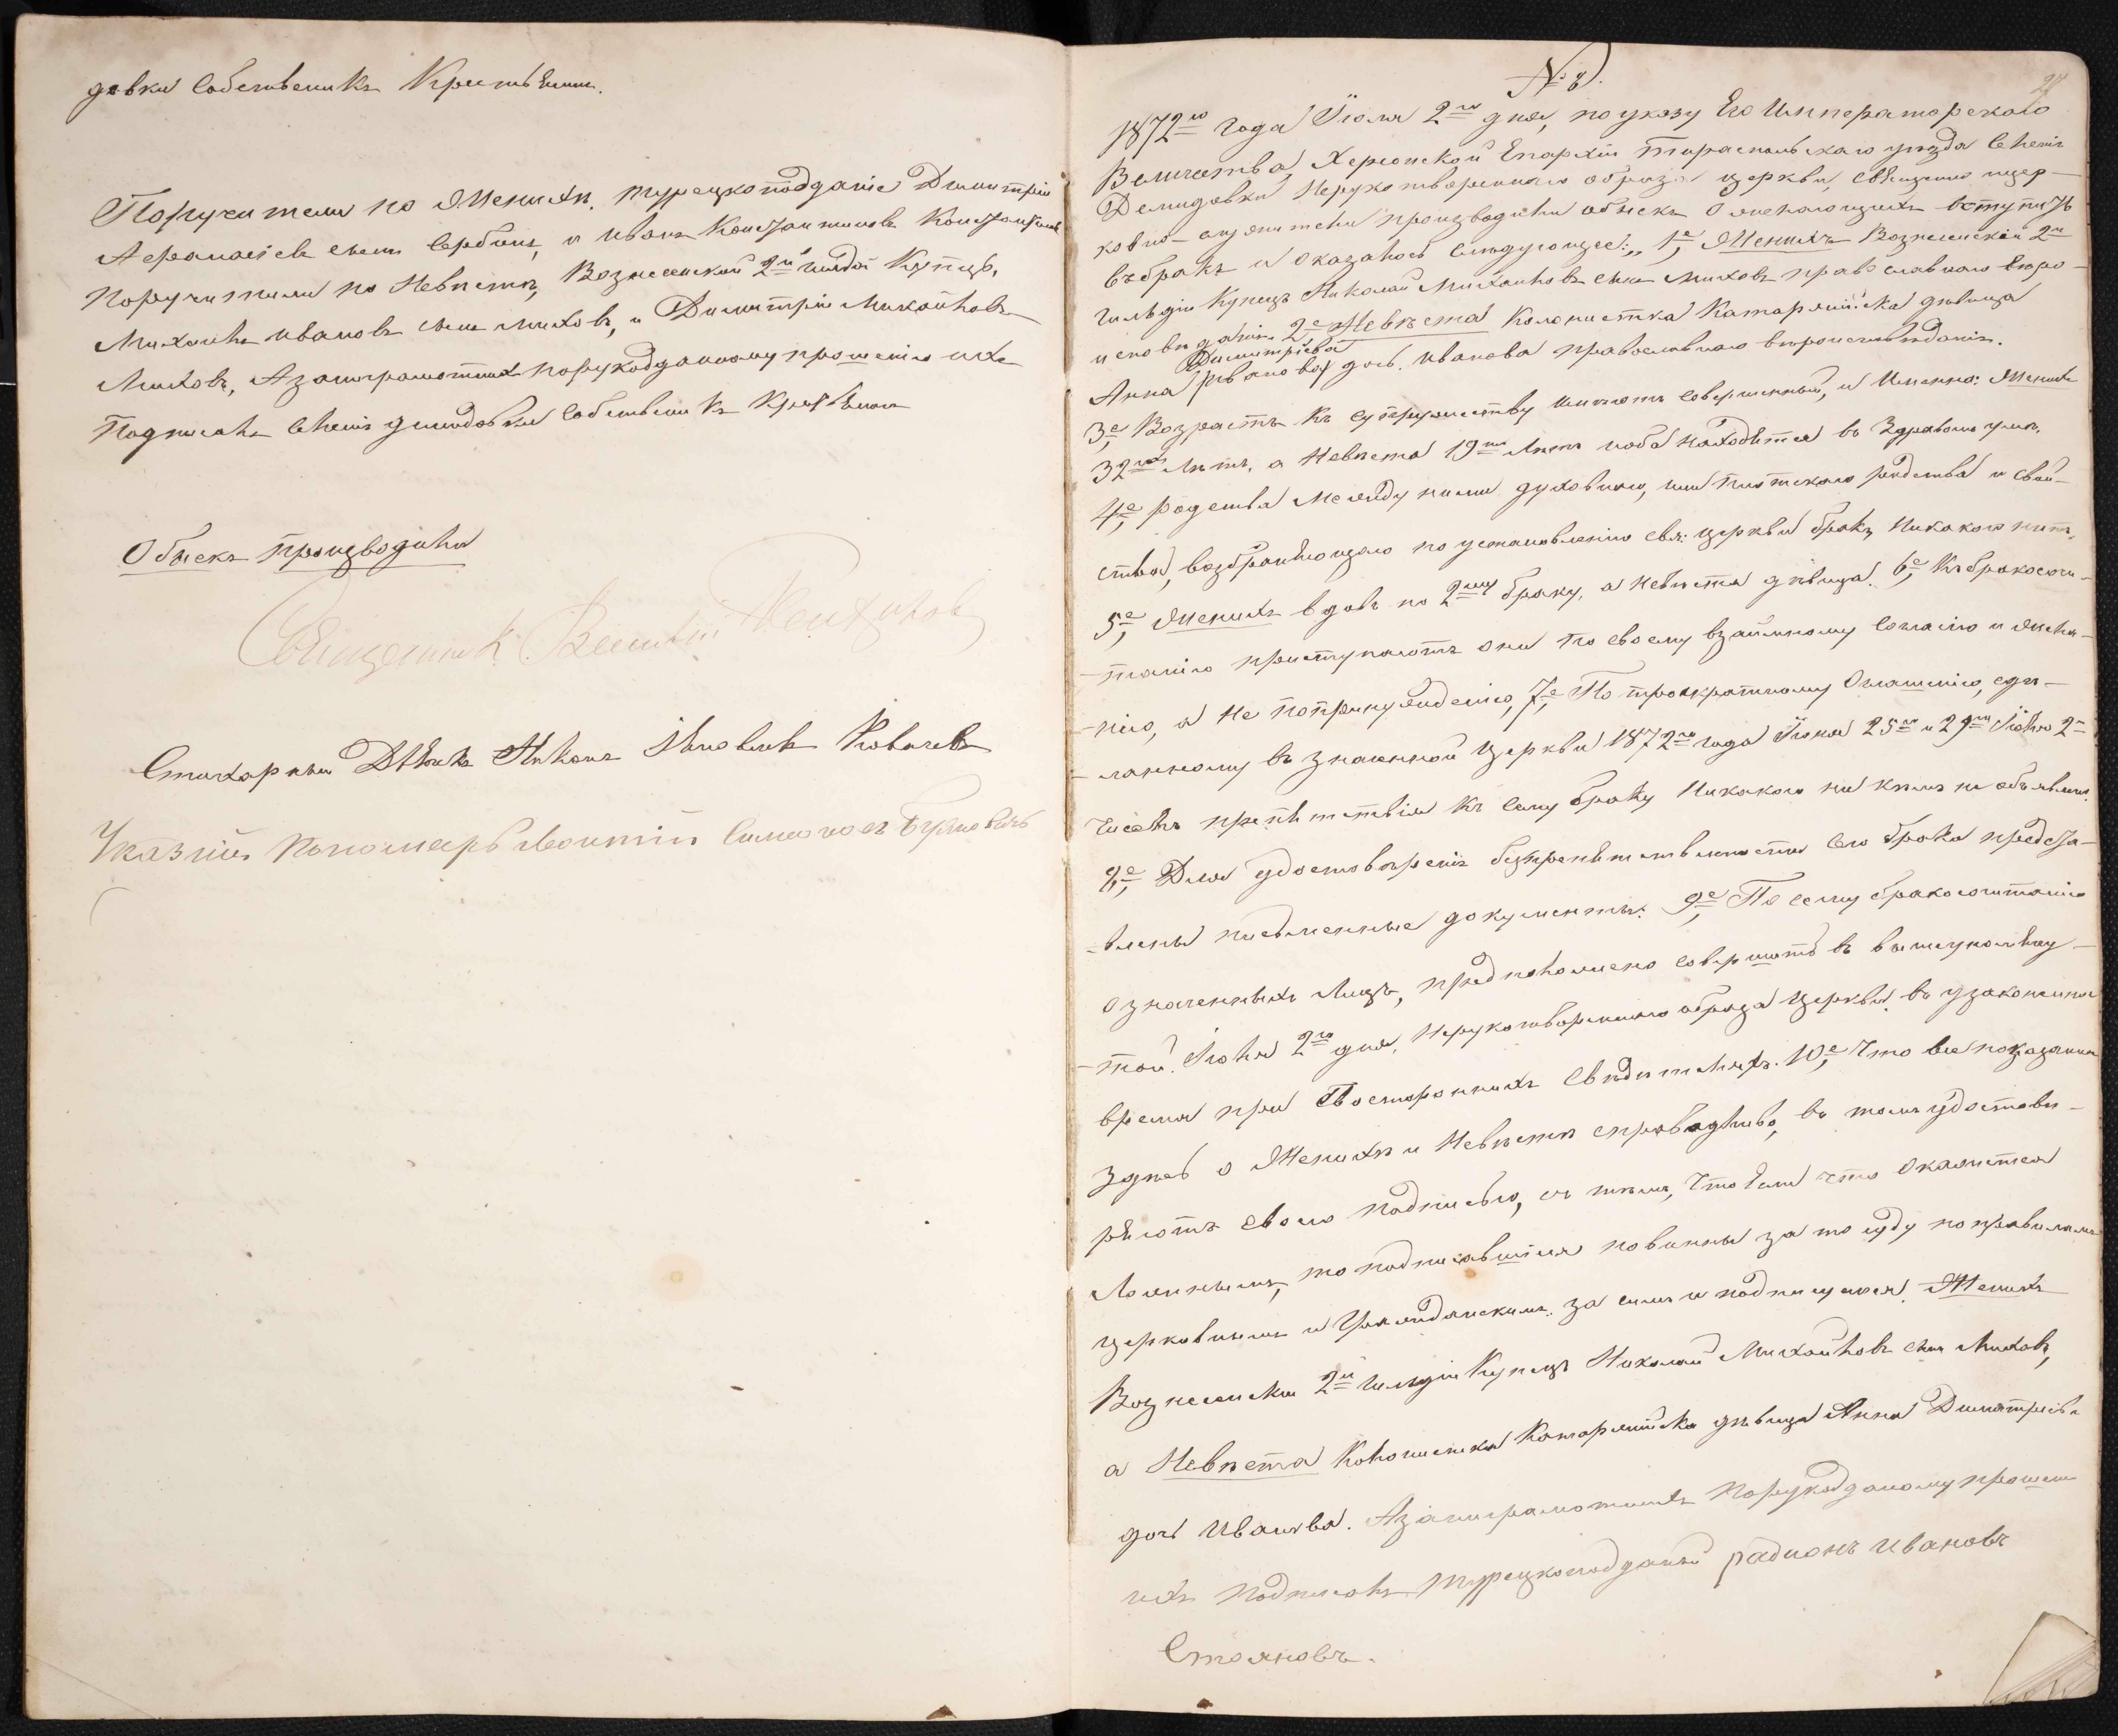 довки собственикъ Крестьянин.
Поручители по Женихѣ. турецкоподданіе Димитрій
Афанасіевъ сынъ Сербинъ, и Иванъ Константиновъ
поручители по Невѣстѣ, Вознесенскій 2й гильдіи Купецъ,
Михаилъ Ивановъ сынъ Миховъ, и Димитрій Михайловъ
Миховъ, А за неграмотных по рукоданному прошенію ихъ
Подписалъ собственикъ Крестьянин
Обыскъ производили
Священникъ Василій
Стихарный Дьякъ Иванъ Ковачевъ
Указній Пономарь Леонтій
№ 8).
1872го года Іюля 2го дня, по указу Его Императорскаго
Величества, Херсонской Епархіи Тираспольскаго уѣзда Селенія
Демидовки Нерукотвореннаго образа церкви, священно и цер-
ковно-служители производили обыскъ о желающихъ вступить
въ бракъ и оказалось слѣдующее: „1е, Женихъ Вознесенскій 2й
гильдіи Купецъ Николай Михаиловъ сынъ Миховъ православнаго вѣро-
исповѣданія. 2е Невѣста Колонистка Катаржийска дѣвица
Димитріева
Анна (Иванова) дочь Иванова православнаго вѣроисповѣданія.
3е, Возрастъ къ супружеству имѣютъ совершенный, и Именно: Женихъ
32хъ лѣтъ, а Невѣста 19ти лѣтъ и оба находятся въ Здравомъ умѣ.
4е, родства Между ними духовнаго, или плотскаго родства и свой-
ства, возбраняющаго по установленію свя: церкви бракъ, Никакого нѣтъ.
5е, Женихъ вдовъ по 2му браку, а Невѣста дѣвица. 6е, Къ бракосоче-
-танію приступаютъ они по своему взаимному согласію и жела-
-нію, а Не по принужденію, 7е, По троекратному Оглашенію, сдѣ-
-ланному въ значенной Церкви 1872го года Іюня 25го и 29го Іюля 2го
чиселъ препятствія къ сему браку Никакого ни кѣмъ не объявлено.
8е, Для удостовѣренія безпрепятственности сего брака предста-
-влены письменные документы. 9е, По сему бракосочетаніе
означенныхъ Лицъ, предположено совершить въ вышеупомяну-
-той. Іюля 2го дня, Нерукотвореннаго образа Церкви, въ узаконенное
время при Постороннихъ Свѣдителяхъ. 10е, Что все показанное
здѣсь о Женихѣ и Невѣстѣ справедливо, въ томъ удостовѣ-
ряютъ своею подписью, съ тѣмъ, что если что окажется
Ложнымъ, то подписавшіися повинны за то суду по правиламъ
церковнымъ и Гражданскимъ. за симъ и подпишемся. Женихъ
Вознесенскій 2й гильдіи Купецъ Николай Михайловъ сынъ Миховъ,
а Невѣста Колонистка Катаржийска дѣвица Анна Димитріева
дочь Иванова. А за неграмотныхъ по рукоданному прошенію
ихъ подписалъ турецкоподданный радионъ Ивановъ
Стояновъ.